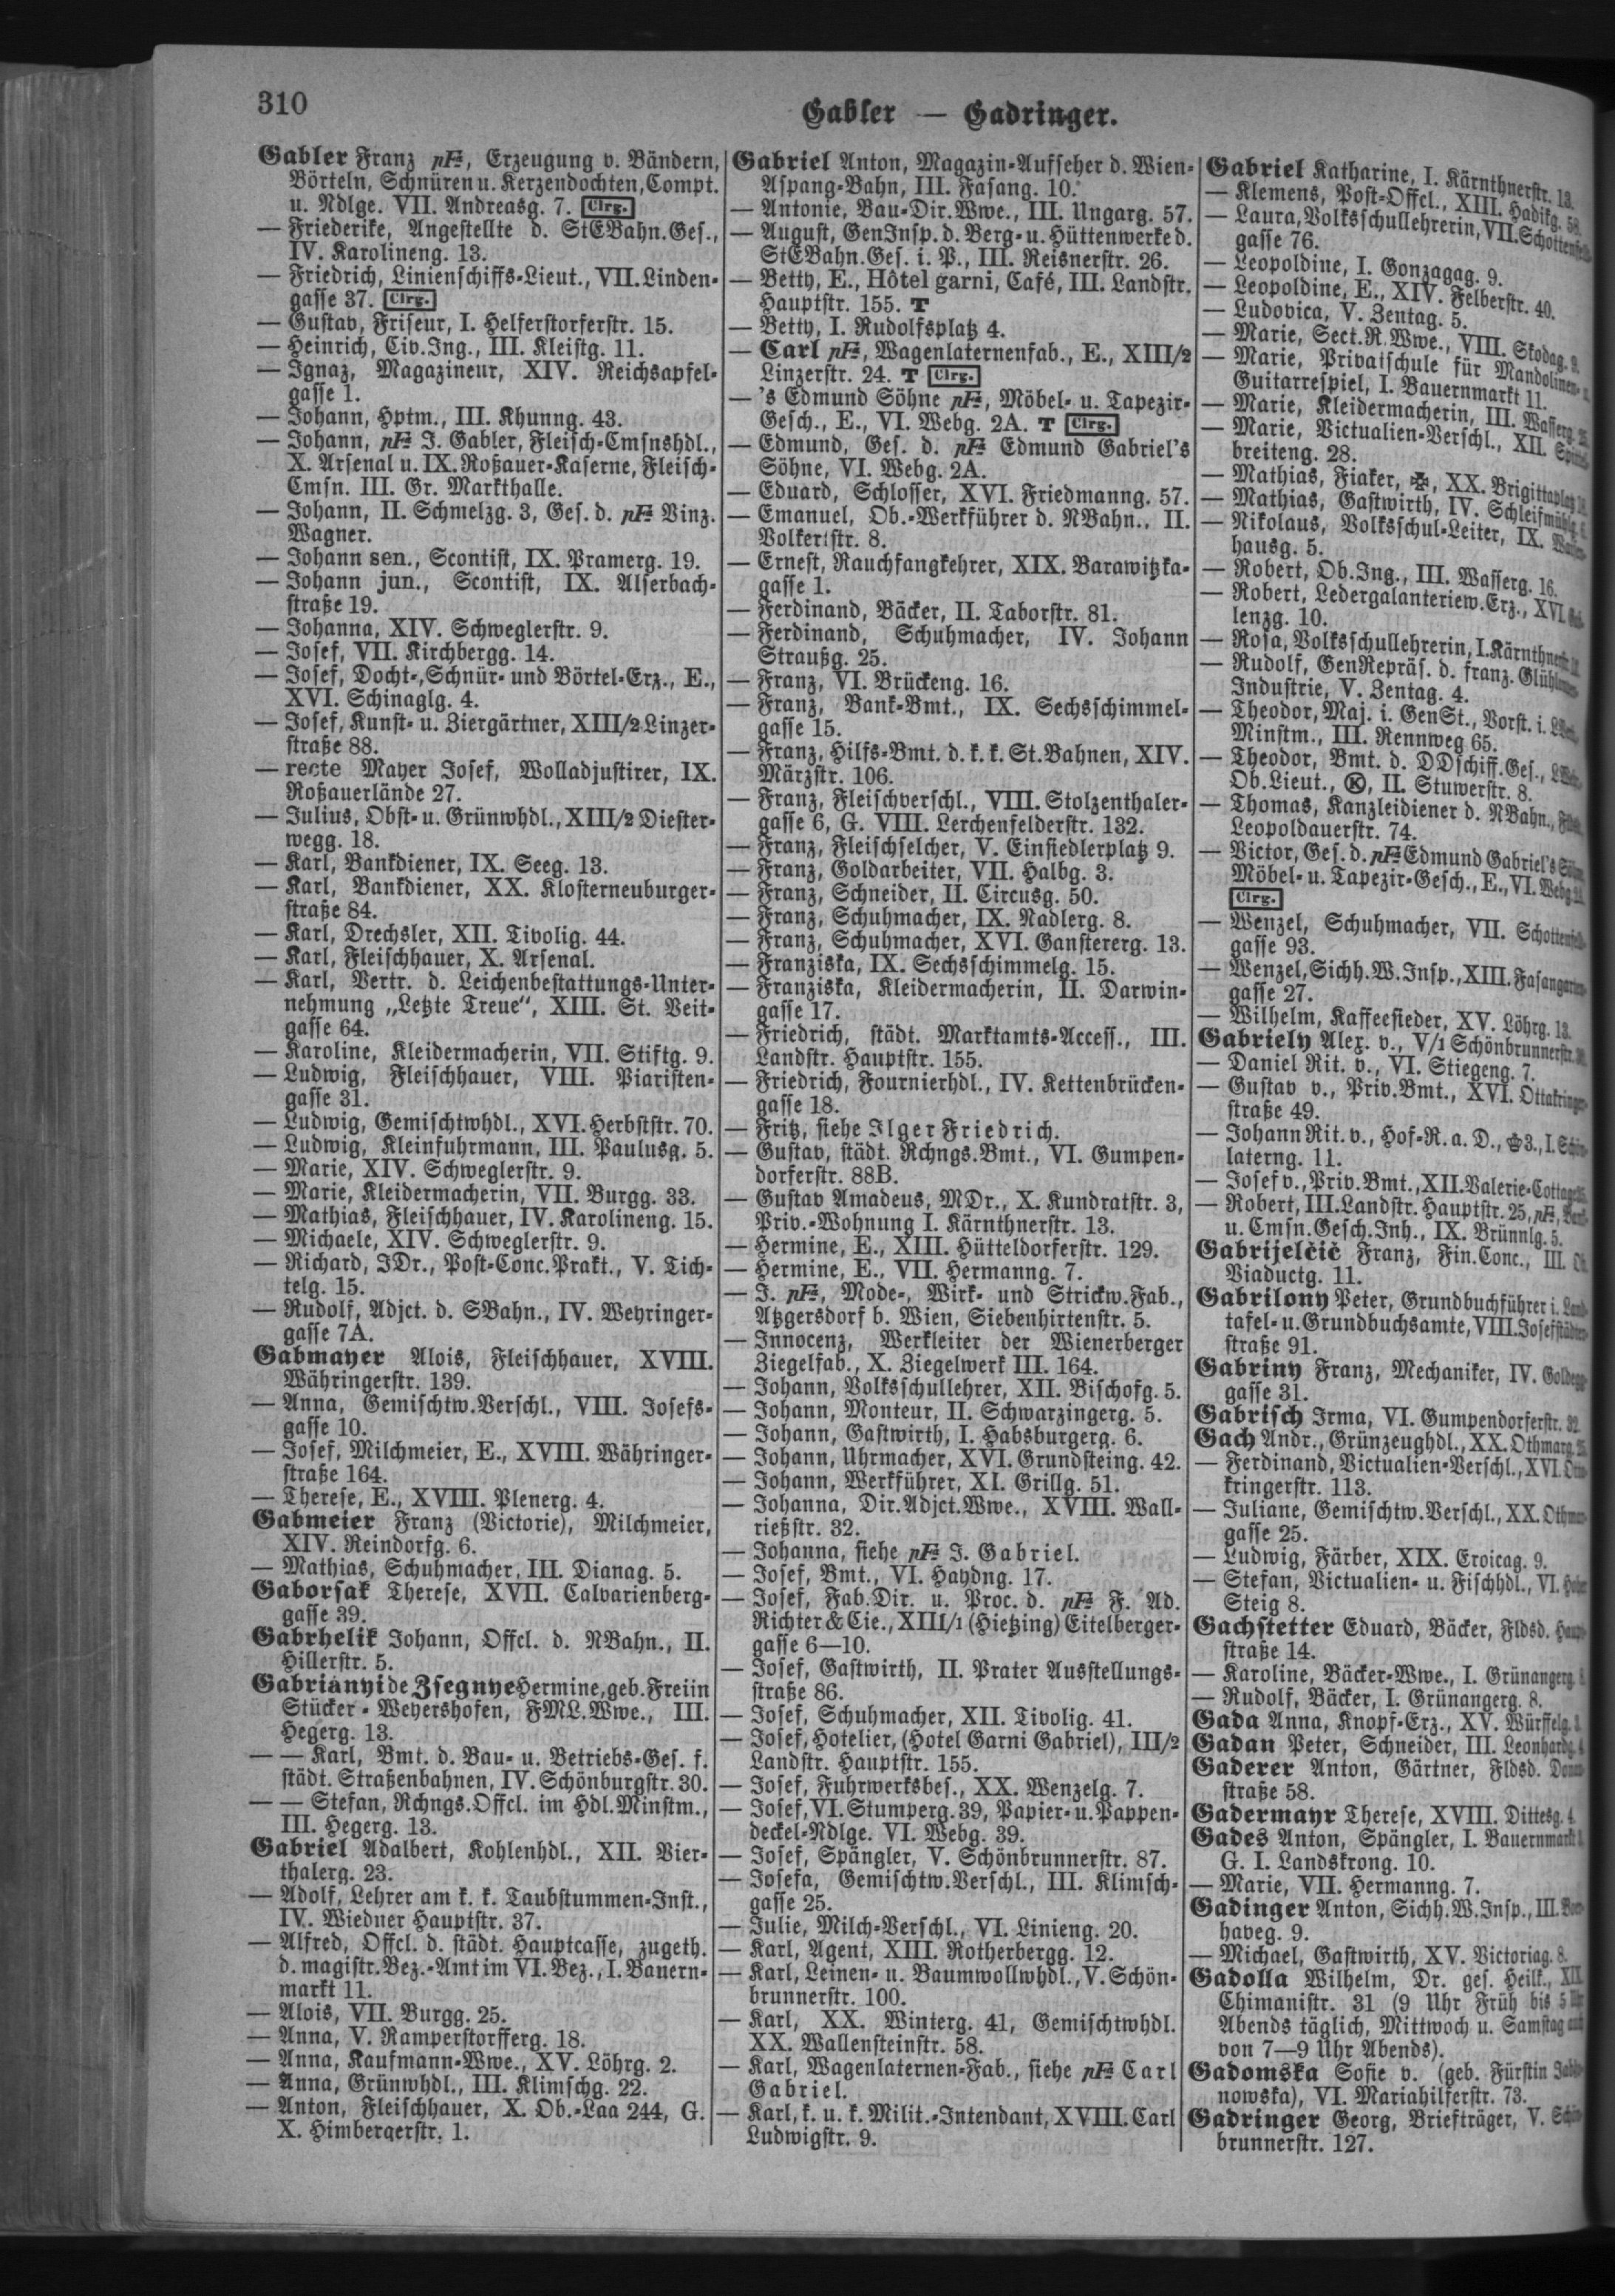 310
Gabler — Gadringer.
Gabler Franz pFa, Erzeugung v. Bändern,
Börteln, Schnüren u. Kerzendochten, Compt.
u. Ndlge. VII. Andreasg. 7. Clrg.
— Friederike, Angestellte d. StEBahn.Ges.,
IV. Karolineng. 13.
— Friedrich, Linienschiffs-Lieut., VII. Linden-
gasse 37. Clrg.
— Gustav, Friseur, I. Helferstorferstr. 15.
— Heinrich, Civ.Ing., III. Kleistg. 11.
— Ignaz, Magazineur, XIV. Reichsapfel-
gasse 1.
— Johann, Hptm., III. Khunng. 43.
— Johann, pFa J. Gabler, Fleisch-Cmsnshdl.,
X. Arsenal u. IX. Roßauer-Kaserne, Fleisch-
Cmsn. III. Gr. Markthalle.
— Johann, II. Schmelzg. 3, Ges. d. pFa Vinz.
Wagner.
— Johann sen., Scontist, IX. Pramerg. 19.
— Johann jun., Scontist, IX. Alserbach-
straße 19.
— Johanna, XIV. Schweglerstr. 9.
— Josef, VII. Kirchbergg. 14.
— Josef, Docht-, Schnür- und Börtel-Erz., E.,
XVI. Schinaglg. 4.
— Josef, Kunst- u. Ziergärtner, XIII/2 Linzer-
straße 88.
— recte Mayer Josef, Wolladjustirer, IX.
Roßauerlände 27.
— Julius, Obst- u. Grünwhdl., XIII/2 Diester-
wegg. 18.
— Karl, Bankdiener, IX. Seeg. 13.
— Karl, Bankdiener, XX. Klosterneuburger-
straße 84.
— Karl, Drechsler, XII. Tivolig. 44.
— Karl, Fleischhauer, X. Arsenal.
— Karl, Vertr. d. Leichenbestattungs-Unter-
nehmung „Letzte Treue“, XIII. St. Veit-
gasse 64.
— Karoline, Kleidermacherin, VII. Stiftg. 9.
— Ludwig, Fleischhauer, VIII. Piaristen-
gasse 31.
— Ludwig, Gemischtwhdl., XVI. Herbststr. 70.
— Ludwig, Kleinfuhrmann, III. Paulusg. 5.
— Marie, XIV. Schweglerstr. 9.
— Marie, Kleidermacherin, VII. Burgg. 33.
— Mathias, Fleischhauer, IV. Karolineng. 15.
— Michaele, XIV. Schweglerstr. 9.
— Richard, JDr., Post-Conc.Prakt., V. Tich-
telg. 15.
— Rudolf, Adjct. d. SBahn., IV. Weyringer-
gasse 7A.
Gabmayer Alois, Fleischhauer, XVIII.
Währingerstr. 139.
— Anna, Gemischtw.Verschl., VIII. Josefs-
gasse 10.
— Josef, Milchmeier, E., XVIII. Währinger-
straße 164.
— Therese, E., XVIII. Plenerg. 4.
Gabmeier Franz (Victorie), Milchmeier,
XIV. Reindorfg. 6.
— Mathias, Schuhmacher, III. Dianag. 5.
Gaborsak Therese, XVII. Calvarienberg-
gasse 39.
Gabrhelik Johann, Offcl. d. NBahn., II.
Hillerstr. 5.
Gabriányi de Zsegnye Hermine, geb. Freiin
Stücker-Weyershofen, FML.Wwe., III.
Hegerg. 13.
— — Karl, Bmt. d. Bau- u. Betriebs-Ges. f.
städt. Straßenbahnen, IV. Schönburgstr. 30.
— — Stefan, Rchngs.Offcl. im Hdl.Minstm.,
III. Hegerg. 13.
Gabriel Adalbert, Kohlenhdl., XII. Vier-
thalerg. 23.
— Adolf, Lehrer am k. k. Taubstummen-Inst.,
IV. Wiedner Hauptstr. 37.
— Alfred, Offcl. d. städt. Hauptcasse, zugeth.
d. magistr.Bez.-Amt im VI. Bez., I. Bauern-
markt 11.
— Alois, VII. Burgg. 25.
— Anna, V. Ramperstorfferg. 18.
— Anna, Kaufmann-Wwe., XV. Löhrg. 2.
— Anna, Grünwhdl., III. Klimschg. 22.
— Anton, Fleischhauer, X. Ob.-Laa 244, G.
X. Himbergerstr. 1.
Gabriel Anton, Magazin-Aufseher d. Wien-
Aspang-Bahn, III. Fasang. 10.
— Antonie, Bau-Dir.Wwe., III. Ungarg. 57.
— August, GenInsp. d. Berg- u. Hüttenwerke d.
StEBahn.Ges. i. P., III. Reisnerstr. 26.
— Betty, E., Hôtel garni, Café, III. Landstr.
Hauptstr. 155. T
— Betty, I. Rudolfsplatz 4.
— Carl pFa, Wagenlaternenfab., E., XIII/2
Linzerstr. 24. T Clrg.
— 's Edmund Söhne pFa, Möbel- u. Tapezir-
Gesch., E., VI. Webg. 2A. T Clrg.
— Edmund, Ges. d. pFa Edmund Gabriel's
Söhne, VI. Webg. 2A.
— Eduard, Schlosser, XVI. Friedmanng. 57.
— Emanuel, Ob.-Werkführer d. NBahn., II.
Volkertstr. 8.
— Ernest, Rauchfangkehrer, XIX. Barawitzka-
gasse 1.
— Ferdinand, Bäcker, II. Taborstr. 81.
— Ferdinand, Schuhmacher, IV. Johann
Straußg. 25.
— Franz, VI. Brückeng. 16.
— Franz, Bank-Bmt., IX. Sechsschimmel-
gasse 15.
— Franz, Hilfs-Bmt. d. k. k. St.Bahnen, XIV.
Märzstr. 106.
— Franz, Fleischverschl., VIII. Stolzenthaler-
gasse 6, G. VIII. Lerchenfelderstr. 132.
— Franz, Fleischselcher, V. Einsiedlerplatz 9.
— Franz, Goldarbeiter, VII. Halbg. 3.
— Franz, Schneider, II. Circusg. 50.
— Franz, Schuhmacher, IX. Nadlerg. 8.
— Franz, Schuhmacher, XVI. Ganstererg. 13.
— Franziska, IX. Sechsschimmelg. 15.
— Franziska, Kleidermacherin, II. Darwin-
gasse 17.
— Friedrich, städt. Marktamts-Access., III.
Landstr. Hauptstr. 155.
— Friedrich, Fournierhdl., IV. Kettenbrücken-
gasse 18.
— Fritz, siehe Ilger Friedrich.
— Gustav, städt. Rchngs.Bmt., VI. Gumpen-
dorferstr. 88B.
— Gustav Amadeus, MDr., X. Kundratstr. 3,
Priv.-Wohnung I. Kärnthnerstr. 13.
— Hermine, E., XIII. Hütteldorferstr. 129.
— Hermine, E., VII. Hermanng. 7.
— J. pFa, Mode-, Wirk- und Strickw.Fab.,
Atzgersdorf b. Wien, Siebenhirtenstr. 5.
— Innocenz, Werkleiter der Wienerberger
Ziegelfab., X. Ziegelwerk III. 164.
— Johann, Volksschullehrer, XII. Bischofg. 5.
— Johann, Monteur, II. Schwarzingerg. 5.
— Johann, Gastwirth, I. Habsburgerg. 6.
— Johann, Uhrmacher, XVI. Grundsteing. 42.
— Johann, Werkführer, XI. Grillg. 51.
— Johanna, Dir.Adjct.Wwe., XVIII. Wall-
rießstr. 32.
— Johanna, siehe pFa J. Gabriel.
— Josef, Bmt., VI. Haydng. 17.
— Josef, Fab.Dir. u. Proc. d. pFa F. Ad.
Richter & Cie., XIII/1 (Hietzing) Eitelberger-
gasse 6—10.
— Josef, Gastwirth, II. Prater Ausstellungs-
straße 86.
— Josef, Schuhmacher, XII. Tivolig. 41.
— Josef, Hotelier, (Hotel Garni Gabriel), III/2
Landstr. Hauptstr. 155.
— Josef, Fuhrwerksbes., XX. Wenzelg. 7.
— Josef, VI. Stumperg. 39, Papier- u. Pappen-
deckel-Ndlge. VI. Webg. 39.
— Josef, Spängler, V. Schönbrunnerstr. 87.
— Josefa, Gemischtw.Verschl., III. Klimsch-
gasse 25.
— Julie, Milch-Verschl., VI. Linieng. 20.
— Karl, Agent, XIII. Rotherbergg. 12.
— Karl, Leinen- u. Baumwollwhdl., V. Schön-
brunnerstr. 100.
— Karl, XX. Winterg. 41, Gemischtwhdl.
XX. Wallensteinstr. 58.
— Karl, Wagenlaternen-Fab., siehe pFa Carl
Gabriel.
— Karl, k. u. k. Milit.-Intendant, XVIII. Carl
Ludwigstr. 9.
Gabriel Katharine, I. Kärnthnerstr. 13.
— Klemens, Post-Offcl., XIII. Hadikg. 58.
— Laura, Volksschullehrerin, VII.
gasse 76.
— Leopoldine, I. Gonzagag. 9.
— Leopoldine, E., XIV. Felberstr. 40.
— Ludovica, V. Zentag. 5.
— Marie, Sect.R.Wwe., VIII. Skodag. 9.
— Marie, Privatschule für Mandolinen-
Guitarrespiel, I. Bauernmarkt 11.
— Marie, Kleidermacherin, III. Wasserg.
— Marie, Victualien-Verschl., XII.
breiteng. 28.
— Mathias, Fiaker, XX. Brigittaplatz
— Mathias, Gastwirth, IV. Schleifmühlg.
— Nikolaus, Volksschul-Leiter, IX.
hausg. 5.
— Robert, Ob.Ing., III. Wasserg. 16.
— Robert, Ledergalanteriew.Erz., XVI.
lenzg. 10.
— Rosa, Volksschullehrerin, I.
— Rudolf, GenRepräs. d. franz.
Industrie, V. Zentag. 4.
— Theodor, Maj. i. GenSt., Vorst. i.
Minstm., III. Rennweg 65.
— Theodor, Bmt. d. DDschiff.Ges.,
Ob.Lieut., Ⓚ, II. Stuwerstr. 8.
— Thomas, Kanzleidiener d. NBahn.,
Leopoldauerstr. 74.
— Victor, Ges. d. pFa Edmund Gabriel's
Möbel- u. Tapezir-Gesch., E., VI. Webg.
Clrg.
— Wenzel, Schuhmacher, VII.
gasse 93.
— Wenzel, Sichh.W.Insp., XIII.
gasse 27.
— Wilhelm, Kaffeesieder, XV. Löhrg. 13.
Gabriely Alex. v., V/1 Schönbrunnerstr.
— Daniel Rit. v., VI. Stiegeng. 7.
— Gustav v., Priv.Bmt., XVI. Ottakringer-
straße 49.
— Johann Rit. v., Hof-R. a. D., 3., I.
laterng. 11.
— Josef v., Priv.Bmt., XII. Valerie-Cottage
— Robert, III. Landstr. Hauptstr. 25, pFa,
u. Cmsn.Gesch.Inh., IX. Brünnlg. 5.
Gabrijelčič Franz, Fin.Conc., III.
Viaductg. 11.
Gabrilony Peter, Grundbuchführer i.
tafel- u. Grundbuchsamte, VIII. Josefstädter-
straße 91.
Gabriny Franz, Mechaniker, IV. Goldegg-
gasse 31.
Gabrisch Irma, VI. Gumpendorferstr. 32.
Gach Andr., Grünzeughdl., XX. Othmarg.
— Ferdinand, Victualien-Verschl., XVI.
kringerstr. 113.
— Juliane, Gemischtw.Verschl., XX. Othmar-
gasse 25.
— Ludwig, Färber, XIX. Eroicag. 9.
— Stefan, Victualien- u. Fischhdl., VI.
Steig 8.
Gachstetter Eduard, Bäcker, Fldsd. Haupt-
straße 14.
— Karoline, Bäcker-Wwe., I. Grünangerg.
— Rudolf, Bäcker, I. Grünangerg. 8.
Gada Anna, Knopf-Erz., XV. Würffelg.
Gadan Peter, Schneider, III. Leonhardg.
Gaderer Anton, Gärtner, Fldsd.
straße 58.
Gadermayr Therese, XVIII. Dittesg. 4.
Gades Anton, Spängler, I. Bauernmarkt
G. I. Landskrong. 10.
— Marie, VII. Hermanng. 7.
Gadinger Anton, Sichh.W.Insp., III.
haveg. 9.
— Michael, Gastwirth, XV. Victoriag. 8.
Gadolla Wilhelm, Dr. ges. Heilk., XII.
Chimanistr. 31 (9 Uhr Früh bis 5 Uhr
Abends täglich, Mittwoch u. Samstag auch
von 7—9 Uhr Abends).
Gadomska Sofie v. (geb. Fürstin
nowska), VI. Mariahilferstr. 73.
Gadringer Georg, Briefträger, V. Schön-
brunnerstr. 127.